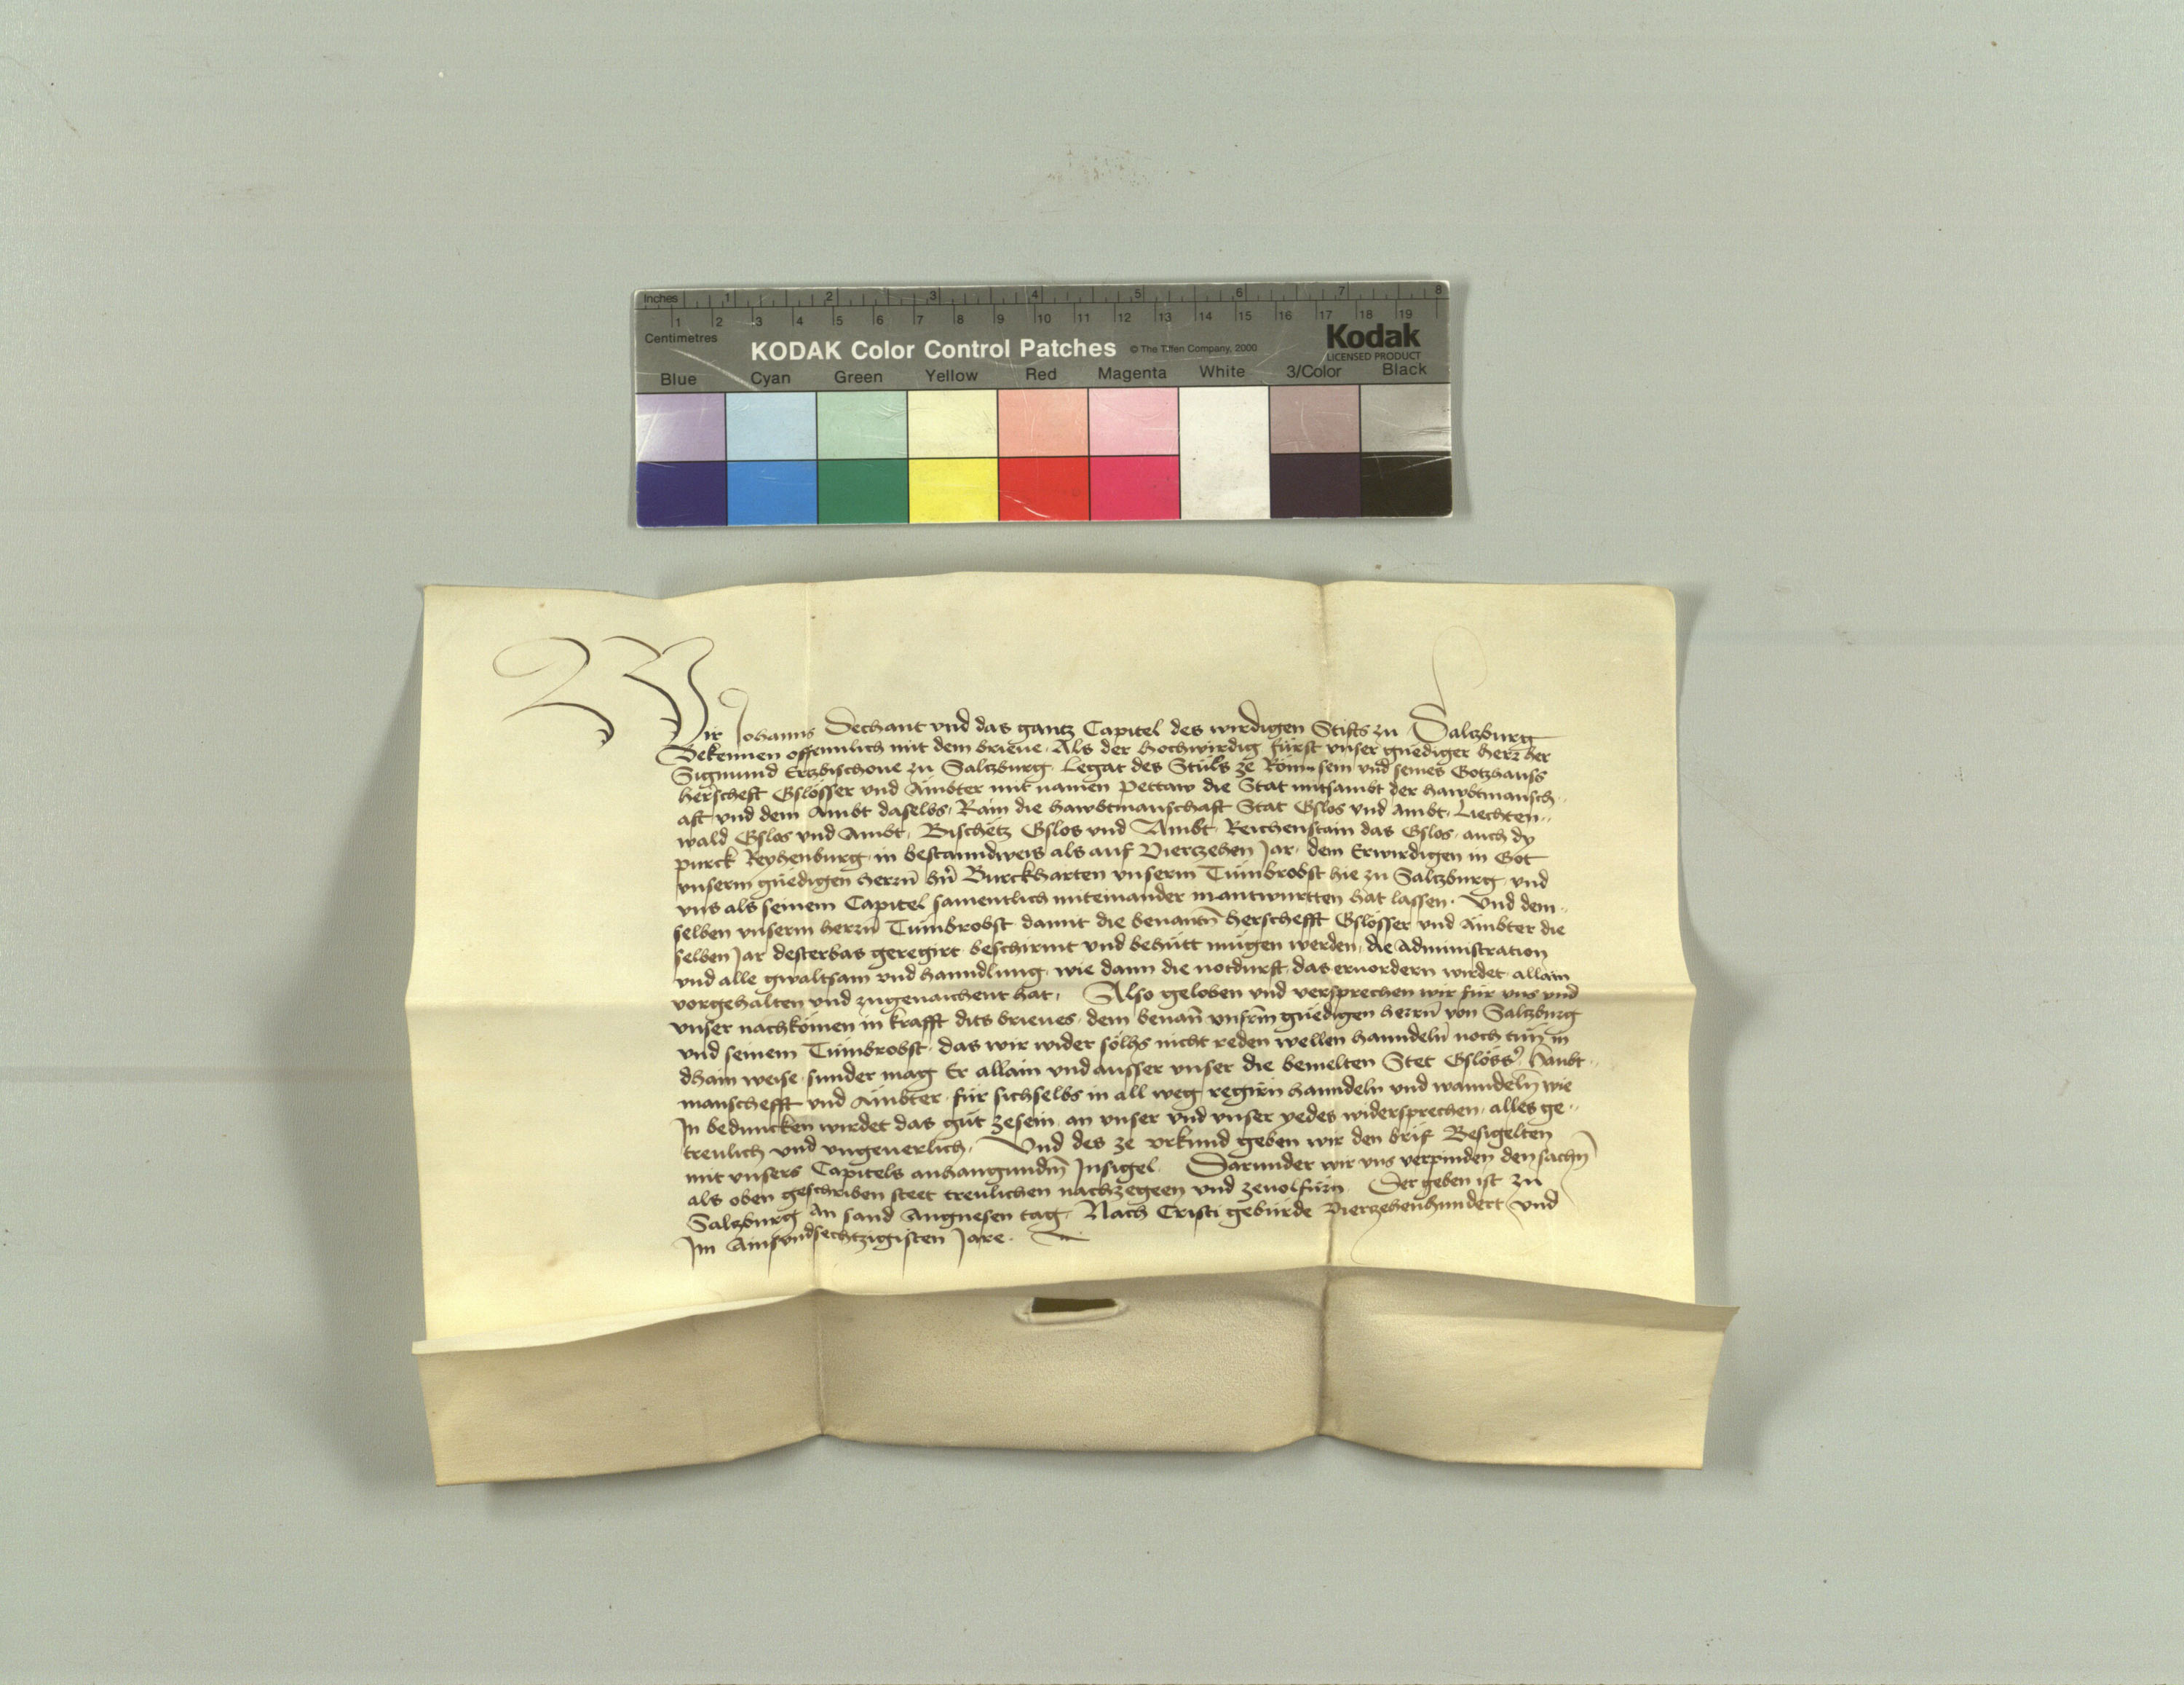 Inches 1 2 3 4 5 6 7 8
1 2 3 4 5 6 7 8 9 10 11 12 13 14 15 16 17 18 19
Centimetres
KODAK Color Control Patches © The Tiffen Company, 2000 Kodak
LICENSED PRODUCT
Blue Cyan Green Yellow Red Magenta White 3/Color Black
Wir Johanns Dechant vnd das gantz Capitel des wirdigen Stifts zu Saltzburg
Bekennen offennlich mit dem brieue. Als der hochwirdig fürst vnser gnediger herr her
Sigmund Ertzbischoue zu Saltzburg Legat des Stuls ze Rom sein vnd seines Gotzhauss
herscheft Gslösser vnd Ämbter mit namen Pettaw die Stat mitsambt der hawbtmansch„
aft vnd dem Ambt daselbs, Rain die hawbtmanschaft Stat Gslos vnd Ambt, Liechten„
wald Gslos vnd Ambt, Bischetz Gslos vnd Ambt, Reichenstain das Gslos, auch dy
purck Reyhenburg, in bestanndweis als auf Vierzehen Jar, dem Erwirdigen in Got
vnserm gnedigen herrn hern Burckharten vnserm Tumbrobst hie zu Saltzburg, vnd
vns als seinem Capitel samentlich miteinander inantwurtten hat lassen. Vnd dem„
selben vnserm herrn Tumbrobst damit die benantn herschefft Gslösser vnd Ämbter die
selben Jar desterbas geregirt beschirmt vnd behütt mügen werden, die Administration
vnd alle gwaltsam vnd hanndlung, wie dann die notdurft, das eruordern wirdet allain
vorgehalten vnd zugenaichent hat, Also geloben vnd versprechen wir für vns vnd
vnser nachkömen in krafft dits brieues, dem benann vnserm gnedigen herrn von Saltzburg
vnd seinem Tumbrobst, das wir wider sölhs nicht reden wellen hanndeln noch tun in
dhain weise, sunder mag Er allain vnd ausser vnser die bemelten Stet Gslösser Haubt„
manschefft vnd Ämbter für sichselbs in all weg regirn hanndeln vnd wanndeln wie
In beduncken wirdet das gut zesein, an vnser vnd vnser yedes widersprechen, alles ge„
treulich vnd vngeuerlich, Vnd des ze vrkund geben wir den brif Besigelten
mit vnsers Capitels anhangundm Insigel. Darunder wir vns verpinden den sachn
als oben geschriben steet treulichen nachzegeen vnd zeuolfürn. Der geben ist zu
Saltzburg An sand Angnesen tag, Nach Cristi gebürde Vierzehenhundert vnd
Im Ainsvndsechtzigisten Jare.